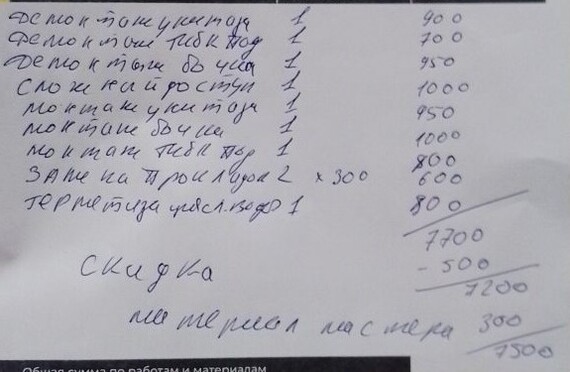 демонтаж унитаза 1 900
демонтаж гибк под 1 700
демонтаж бочка 1 950
сложный доступ 1 1000
монтаж унитаза 1 950
монтаж бочка 1 1000
монтаж гибк под 1 800
замена прокладок 2 x 300 600
герметизац 1 800
7700
скидка - 500
7200
материал мастера 300
7500
Общая сумма по работам и материалам